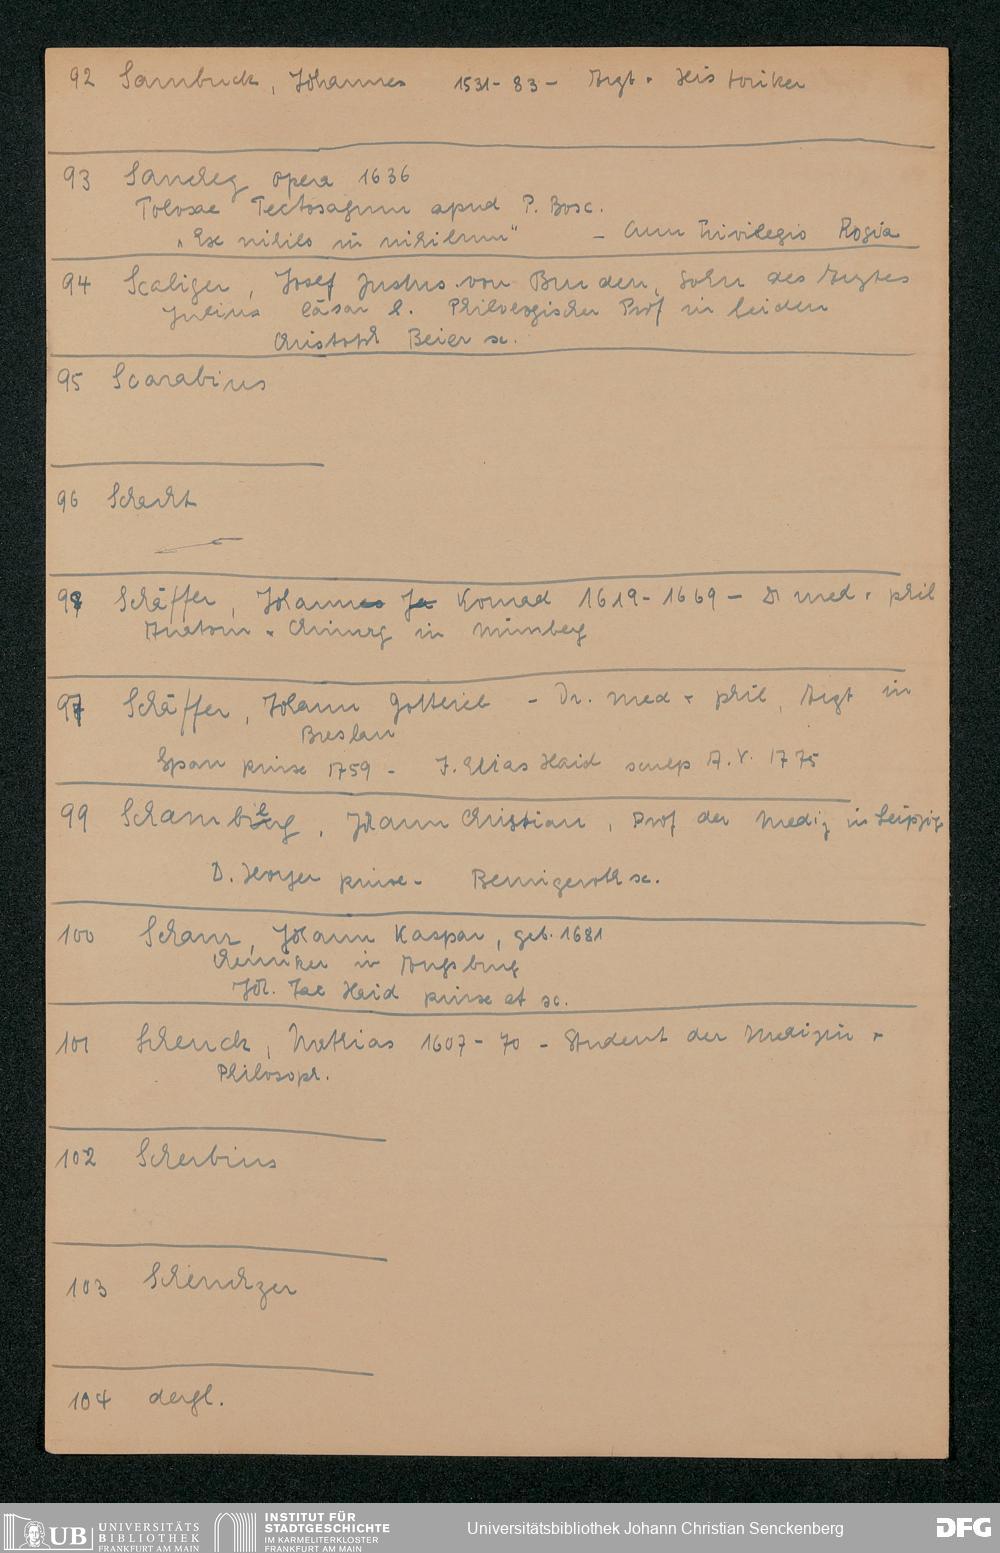 92 Sambuck, Johannes 1531-83 - Arzt + Historiker
93 Sanchez opera 1636
Tolosae Tectosagum apud P. Bosc.
"Ex nihilo in nihilum" - Cum Privilegio Regia
94 Scaliger, Josef Justus von Burden, Sohn des Arztes
Julius Cäsar S. Philologischer Prof in Leiden
Christoph Beier sc.
95 Scarabius
96 Schacht
98 Schäffer, Johann Konrad 1619-1669 - Dr med + phil
Anatom + Chirurg in Nürnberg
97 Schäffer, Johann Gottlieb - Dr. med + phil, Arzt in
Breslau
Span pinx 1759 - J. Elias Haid sculp A.V. 1775
99 Schamberg, Johann Christian, Prof der Mediz in Leipzig
D. Hoyer pinx - Bernigeroth sc.
100 Schanz, Johann Kaspar, geb. 1681
Chemiker in Augsburg
Joh. Jac Haid pinx et sc.
101 Schenck, Mathias 1607-70 - Student der Medizin +
Philosoph.
102 Scherbius
103 Scheuchzer
104 dergl.
UB UNIVERSITÄTS
BIBLIOTHEK
FRANKFURT AM MAIN
INSTITUT FÜR
STADTGESCHICHTE
IM KARMELITERKLOSTER
FRANKFURT AM MAIN
Universitätsbibliothek Johann Christian Senckenberg
DFG